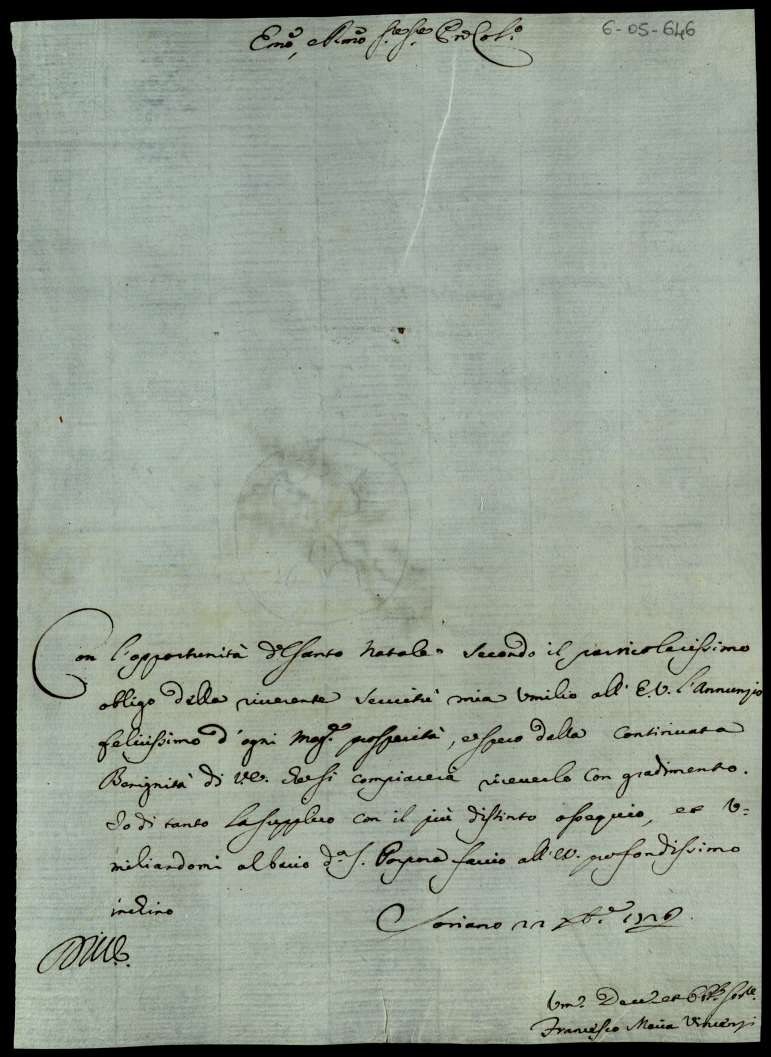 6-05-646
Emo, e Rmo Sre Sre Prone Colmo
Con l'opportunità del Santo Natale secondo il particolarissimo
obligo della riverente servitù mia umilio all' E.V. l'Annunzio
felicissimo d'ogni magr. prosperità, e spero dalla continuata
Benignità di V.E. che si compiacerà riceverlo con gradimento.
Io di tanto la supplico con il più distinto ossequio, et u=
miliandomi al bacio da S. Porpora faccio all' E.V. profondissimo
inchino
Soriano 22 Xbre 1726
Di V.E.
Umo Devmo et Obblmo Sore
Francesco Maria Vincenzi